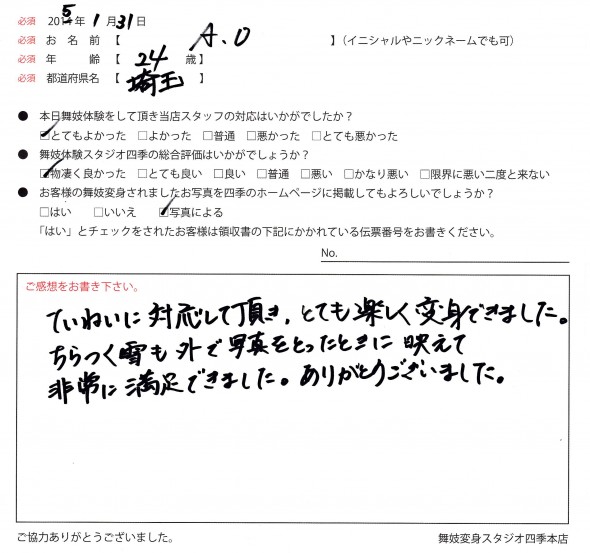 必須 2015年 1月31日
必須 お名前【 A.O 】（イニシャルやニックネームでも可）
必須 年齢【 24 歳】
必須 都道府県名【 埼玉 】
● 本日舞妓体験をして頂き当店スタッフの対応はいかがでしたか？
☑とてもよかった □よかった □普通 □悪かった □とても悪かった
● 舞妓体験スタジオ四季の総合評価はいかがでしょうか？
☑物凄く良かった □とても良い □良い □普通 □悪い □かなり悪い □限界に悪い二度と来ない
● お客様の舞妓変身されましたお写真を四季のホームページに掲載してもよろしいでしょうか？
□はい □いいえ ☑写真による
「はい」とチェックをされたお客様は領収書の下記にかかれている伝票番号をお書きください。
No.
ご感想をお書き下さい。
ていねいに対応して頂き、とても楽しく変身できました。
ちらつく雪も外で写真をとったときに映えて
非常に満足できました。ありがとうございました。
ご協力ありがとうございました。 舞妓変身スタジオ四季本店